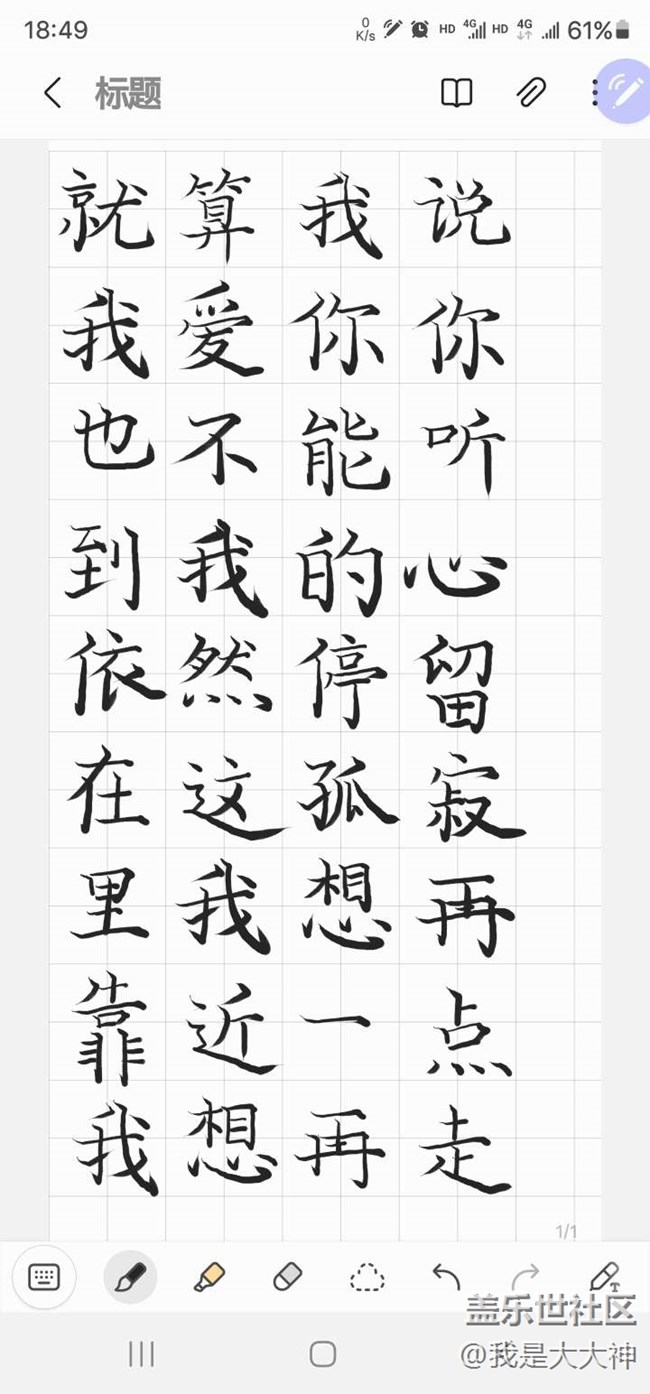 18:49 0 K/s HD 4G HD 4G 61%
标题
就算我说
我爱你你
也不能听
到我的心
依然停留
在这孤寂
里我想再
靠近一点
我想再走
1/1
盖乐世社区
@我是大大神